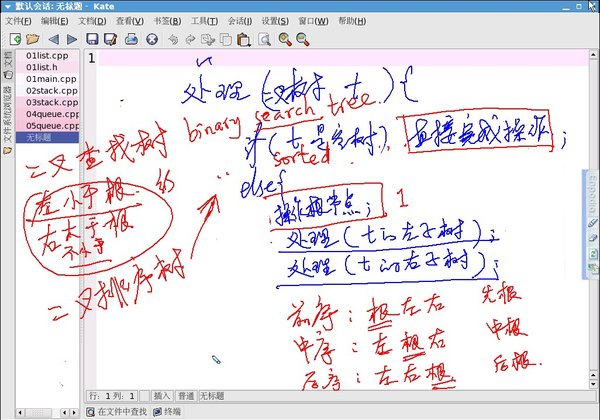 默认会话: 无标题 - Kate
文件(F) 编辑(E) 文档(D) 查看(V) 书签(B) 工具(T) 会话(I) 设置(S) 窗口(W) 帮助(H)
文档
文件系统浏览器
01list.cpp
01list.h
01main.cpp
02stack.cpp
03stack.cpp
04queue.cpp
05queue.cpp
无标题
1
处理(二叉树 t){
binary search tree
if(t是空树) 直接完成操作;
sorted
else{
操作根节点; 1
处理(t的左子树);
处理(t的右子树);
二叉查找树
左小于根 的
右大于根
不小于
二叉排序树
前序: 根左右 先根
中序: 左根右 中根
后序: 左右根 后根.
行: 1 列: 1 插入 普通 无标题
在文件中查找 终端